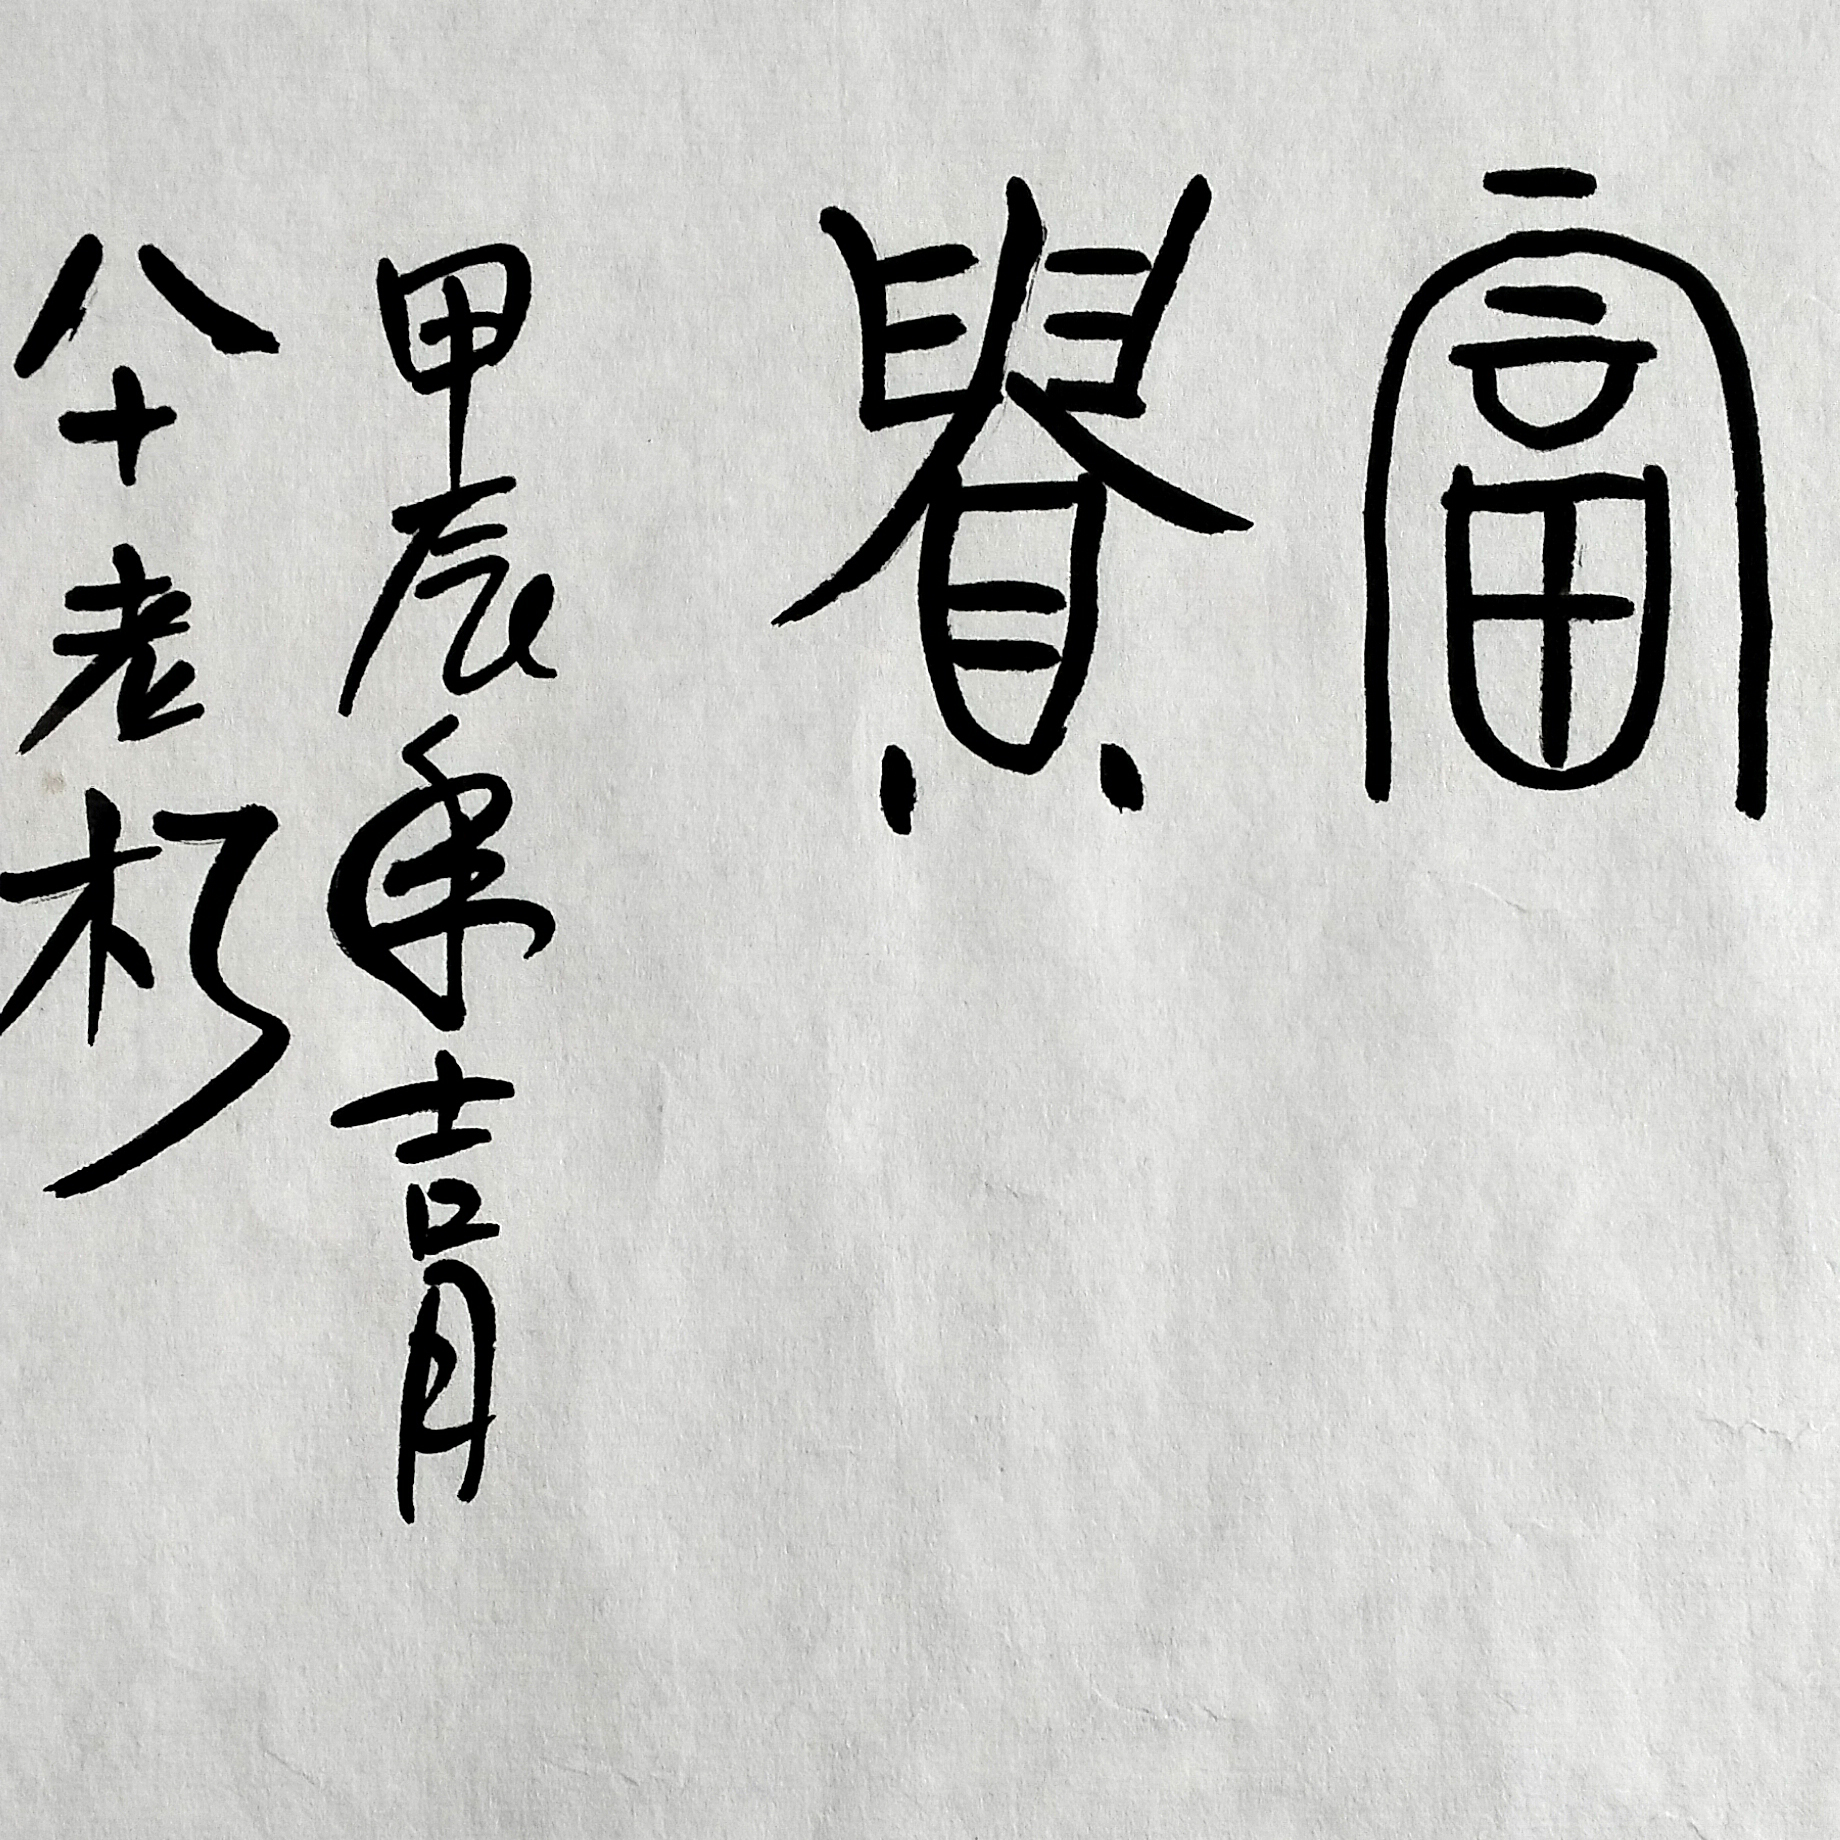 富貴
甲辰年吉月
八十老朽